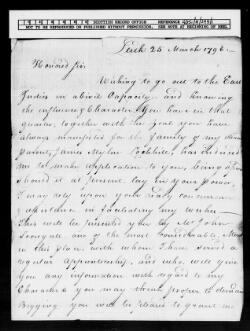 SCOTTISH RECORD OFFICE
NOT TO BE REPRODUCED OR PUBLISHED WITHOUT PERMISSION. SEE NOTE AT BEGINNING OF REEL
REFERENCE
Leith 25 March 1796
Honored Sir
Wishing to go out to the East
Indies in a Civil Capacity, and knowing
the influence & Character you have in that
quarter, together with the you have
always manifested for the family of my
Parent, Jane
me to make application to you, being
Should it at present lay in your power,
I may rely upon your ready concurrence
& assistance in facilitating my wishes
This will be presented you by Mr John
one of the most Considerable
in this place with whom I have served a
regular apprenticeship, and who, will give
you any information with regard to my
Character you may think proper to demand
Begging you will be pleased to grant me